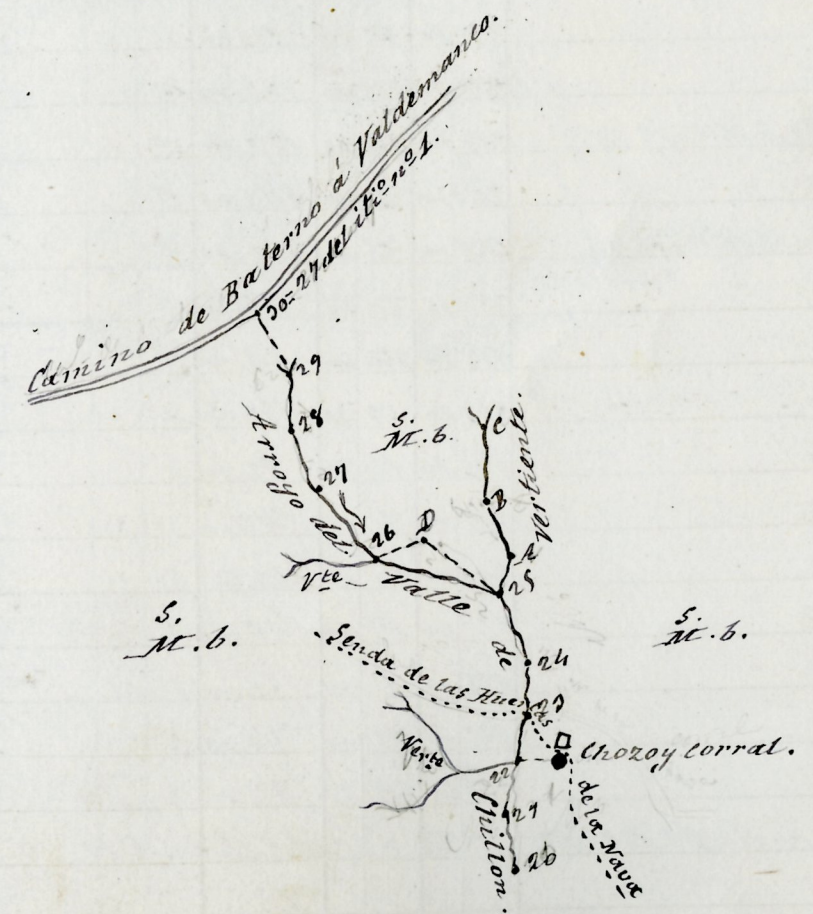 Camino de Baterno á Valdemanco.
30=27 del itº nº 1.
29
28
27
26
Arroyo del Valle de Chillon.
S.
M. b.
C
B
A
D
Vertiente.
25
Vte
S.
M. b.
S.
M. b.
24
Senda de las Huertas
23
Choza y Corral.
Verte
22
21
20
de la Nava